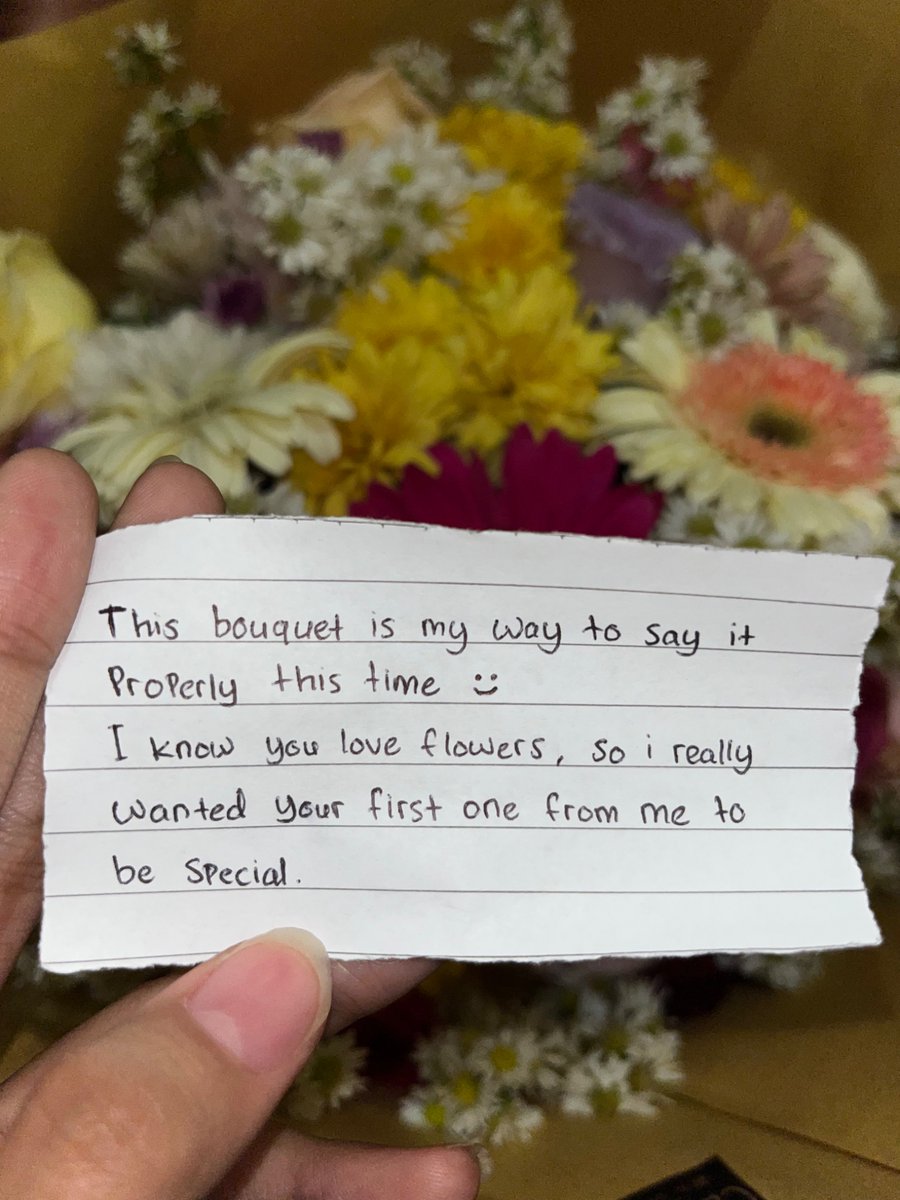 This bouquet is my way to say it
Properly this time :)
I know you love flowers, so i really
wanted your first one from me to
be special.